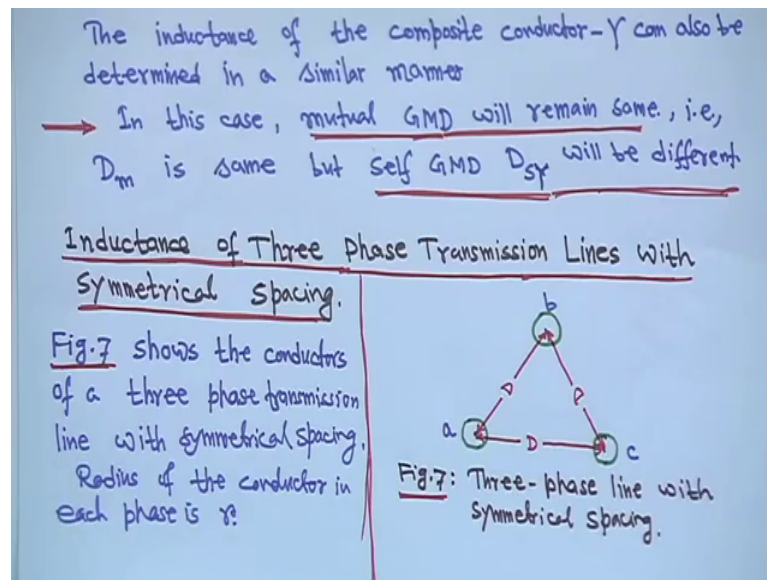 The inductance of the composite conductor-Y can also be
determined in a similar manner
In this case, mutual GMD will remain same, i.e,
Dm is same but self GMD DSY will be different.
Inductance of Three Phase Transmission Lines with
Symmetrical Spacing.
Fig.7 shows the conductors
of a three phase transmission
line with symmetrical spacing.
Radius of the conductor in
each phase is r.
b
D D
a D c
Fig.7: Three-phase line with
symmetrical spacing.